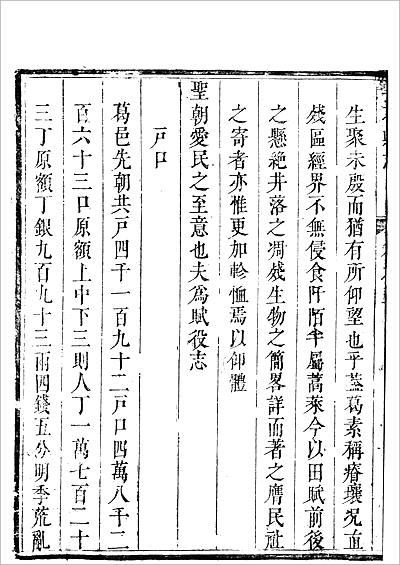 生聚未殷而猶有所仰望也乎蓋葛素稱瘠壤况血
殘區經界不無侵食阡陌半屬蒿萊今以田賦前後
之懸絶井落之凋殘生物之簡畧詳而著之膺民社
之寄者亦惟更加軫恤焉以仰體
聖朝愛民之至意也夫爲賦役志
戸口
葛邑先朝共戸四千一百九十二戸口四萬八千二
百六十三口原額上中下三則人丁一萬七百二十
三丁原額丁銀九百九十三兩四錢五分明季荒亂